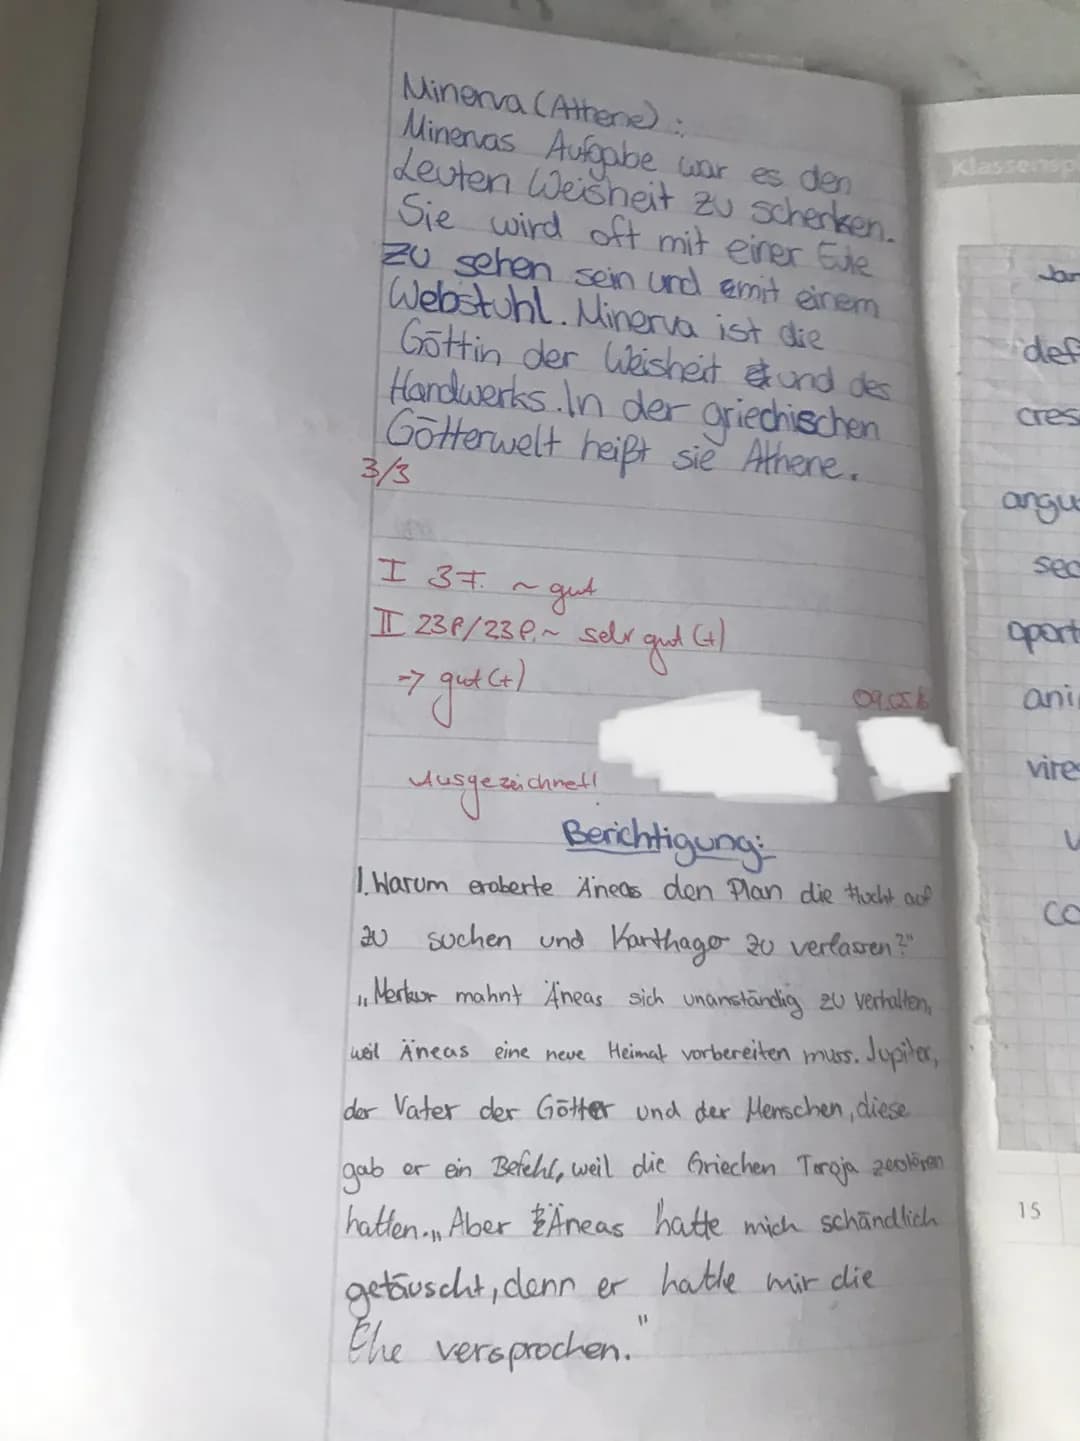 Minerva (Athene):
Minervas Aufgabe war es den
Leuten Weisheit zu schenken.
Sie wird oft mit einer Eule
zu sehen sein und mit einem
Webstuhl. Minerva ist die
Göttin der Weisheit und des
Handwerks. In der griechischen
Götterwelt heißt sie Athene.
3/3
I 3F. ~ gut
II 23P/23P. ~ sehr gut (+)
→ gut (+)
Ausgezeichnet!
Berichtigung:
1. Warum eroberte Äneas den Plan die Flucht auf
zu suchen und Karthago zu verlassen?"
„Merkur mahnt Äneas sich unanständig zu verhalten,
weil Äneas eine neue Heimat vorbereiten muss. Jupiter,
der Vater der Götter und der Menschen, diese
gab er ein Befehl, weil die Griechen Toroja zerstören
hatten. „Aber Äneas hatte mich schändlich
getäuscht, denn er hatte mir die
Ehe versprochen."
Klassensp
Jan
def
cres
angu
sec
oport
ani
vire
co
15